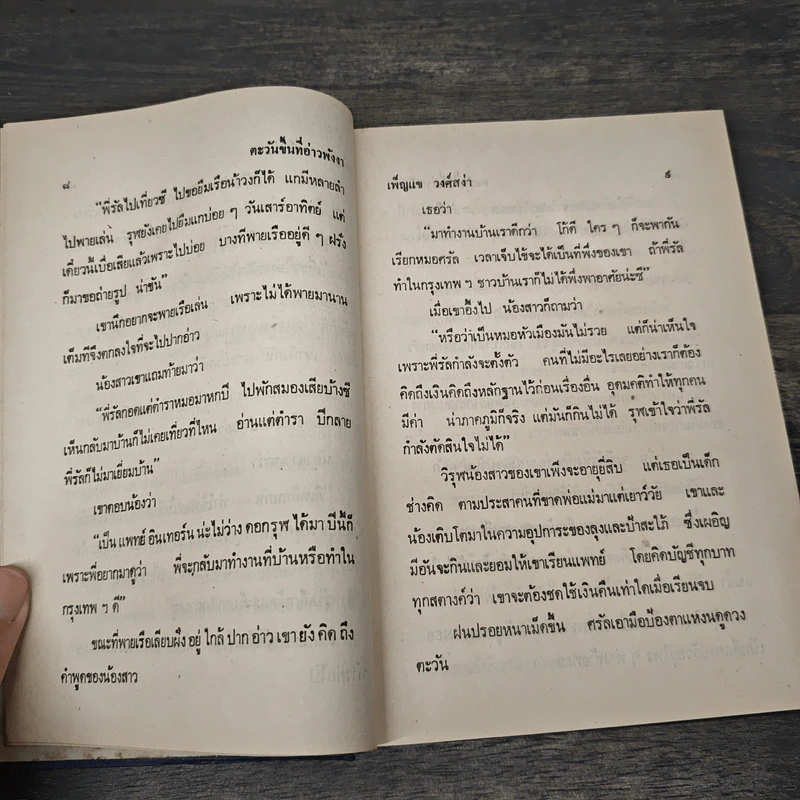 ๘
ตะวันขึ้นที่อ่าวพังงา
“พี่รัลไปเที่ยวซี ไปขอยืมเรือน้าวงก็ได้ แกมีหลายลำ
ไปพายเล่น รุฬยังเคยไปยืมแกบ่อย ๆ วันเสาร์อาทิตย์ แต่
เดี๋ยวนี้เบื่อเสียแล้วเพราะไปบ่อย บางทีพายเรืออยู่ดี ๆ ฝรั่ง
ก็มาขอถ่ายรูป น่าขัน”
เขานึกอยากจะพายเรือเล่น เพราะไม่ได้พายมานาน
เต็มทีจึงตกลงใจที่จะไปปากอ่าว
น้องสาวเขาแถมท้ายมาว่า
“พี่รัลกอดแต่ตำราหมอมาหกปี ไปพักสมองเสียบ้างซี
เห็นกลับมาบ้านก็ไม่เคยเที่ยวที่ไหน อ่านแต่ตำรา ปีกลาย
พี่รัลก็ไม่มาเยี่ยมบ้าน”
เขาตอบน้องว่า
“เป็นแพทย์อินเทอร์นน่ะไม่ว่างดอกรุฬ ได้มาปีนี้ก็
เพราะพี่อยากมาดูว่า พี่จะกลับมาทำงานที่บ้านหรือทำใน
กรุงเทพ ฯ ดี”
ขณะที่พายเรือเลียบฝั่งอยู่ใกล้ปากอ่าวเขายังคิดถึง
คำพูดของน้องสาว
เพ็ญแข วงศ์สง่า
๙
เธอว่า
“มาทำงานบ้านเราดีกว่า โก้ดี ใคร ๆ ก็จะพากัน
เรียกหมอศรัล เวลาเจ็บไข้จะได้เป็นที่พึ่งของเขา ถ้าพี่รัล
ทำในกรุงเทพ ฯ ชาวบ้านเราก็ไม่ได้พึ่งพาอาศัยน่ะซี”
เมื่อเขาอึ้งไป น้องสาวก็ถามว่า
“หรือว่าเป็นหมอหัวเมืองมันไม่รวย แต่ก็น่าเห็นใจ
เพราะพี่รัลกำลังจะตั้งตัว คนที่ไม่มีอะไรเลยอย่างเราก็ต้อง
คิดถึงเงินคิดถึงหลักฐานไว้ก่อนเรื่องอื่น อุดมคติทำให้ทุกคน
มีค่า น่าภาคภูมิก็จริง แต่มันก็กินไม่ได้ รุฬเข้าใจว่าพี่รัล
กำลังตัดสินใจไม่ได้”
วิรุฬน้องสาวของเขาเพิ่งจะอายุยี่สิบ แต่เธอเป็นเด็ก
ช่างคิด ตามประสาคนที่ขาดพ่อแม่มาแต่เยาว์วัย เขาและ
น้องเติบโตมาในความอุปการะของลุงและป้าสะใภ้ ซึ่งเผอิญ
มีอันจะกินและยอมให้เขาเรียนแพทย์ โดยคิดบัญชีทุกบาท
ทุกสตางค์ว่า เขาจะต้องชดใช้เงินคืนเท่าใดเมื่อเรียนจบ
ฝนปรอยหนาเม็ดขึ้น ศรัลเอามือป้องตาแหงนดูดวง
ตะวัน